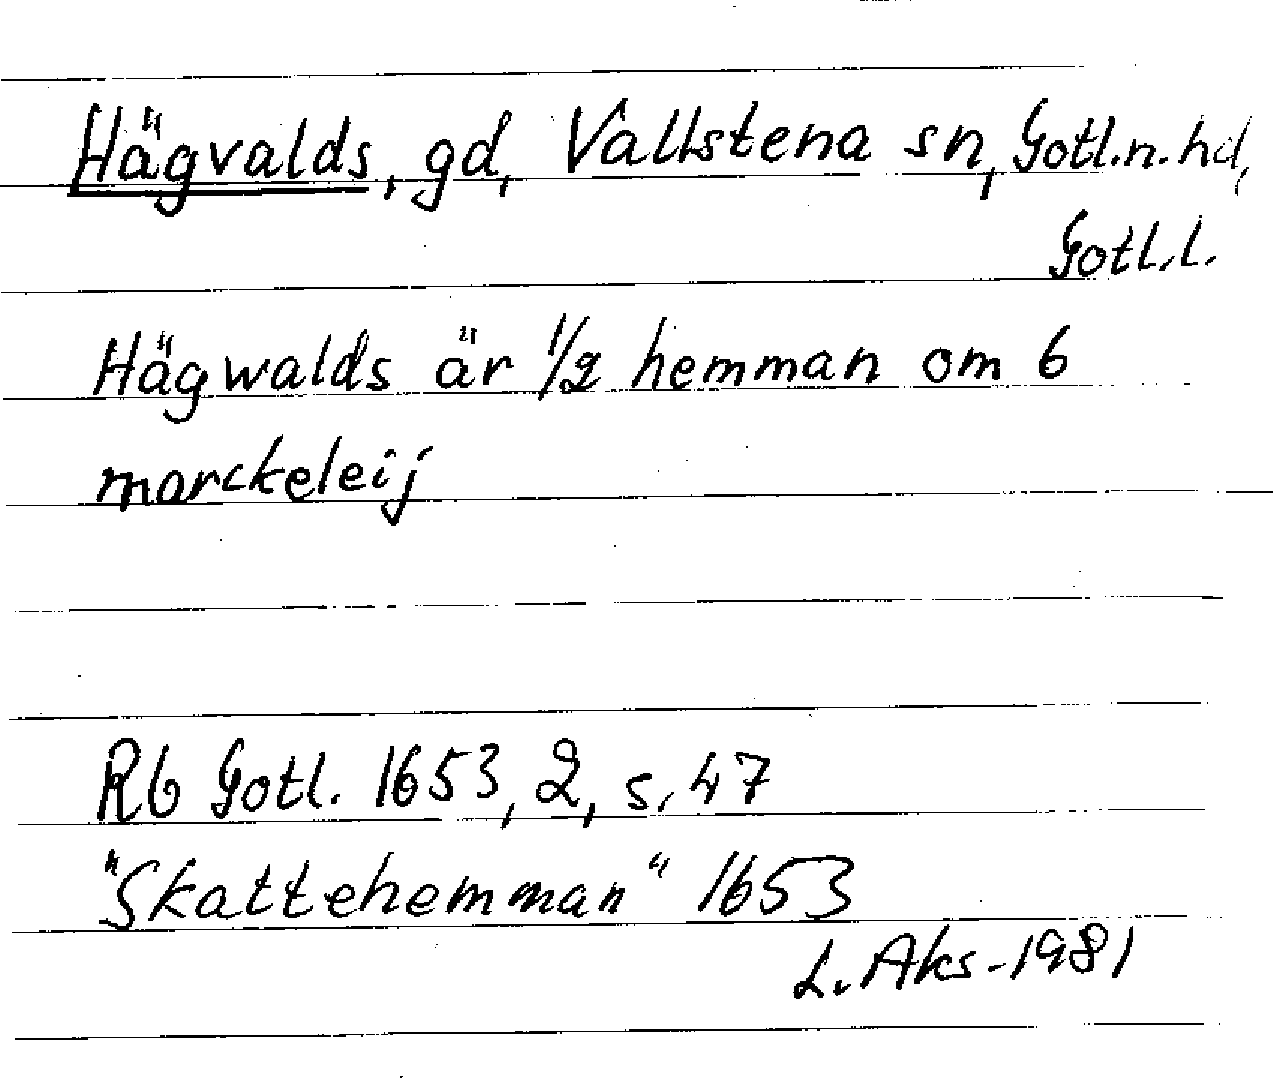 Hägvalds, gd, Vallstena sn, Gotl.n.hd,
Gotl.l.
Hägwalds är 1/2 hemman om 6
marckeleij
Rb Gotl. 1653, 2, s. 47
"Skattehemman" 1653
L. Aks-1981